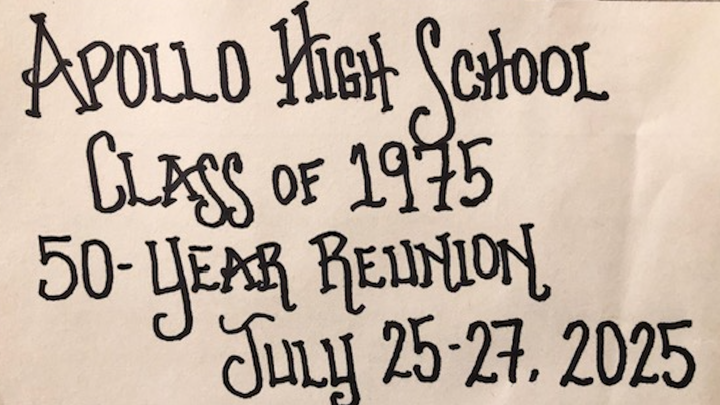 Apollo High School
Class of 1975
50-Year Reunion
July 25-27, 2025